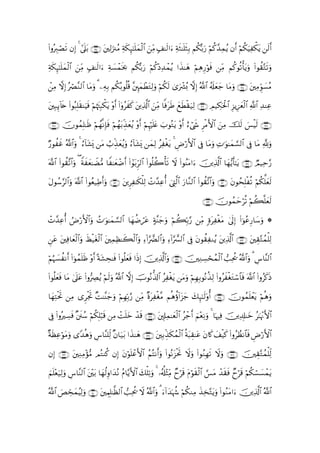 أَلَن يَكْفِيَكُمْ أَن يُمِدَّكُمْ رَبُّكُم بِثَلَـٰثَةِ ءَالَـٰفٍ مِّنَ ٱلْمَلَـٰٓئِكَةِ مُنزَلِينَ ۝ بَلَىٰٓ ۚ إِن تَصْبِرُوا۟
وَتَتَّقُوا۟ وَيَأْتُوكُم مِّن فَوْرِهِمْ هَـٰذَا يُمْدِدْكُمْ رَبُّكُم بِخَمْسَةِ ءَالَـٰفٍ مِّنَ ٱلْمَلَـٰٓئِكَةِ
مُسَوِّمِينَ ۝ وَمَا جَعَلَهُ ٱللَّهُ إِلَّا بُشْرَىٰ لَكُمْ وَلِتَطْمَئِنَّ قُلُوبُكُم بِهِۦ ۗ وَمَا ٱلنَّصْرُ إِلَّا مِنْ
عِندِ ٱللَّهِ ٱلْعَزِيزِ ٱلْحَكِيمِ ۝ لِيَقْطَعَ طَرَفًا مِّنَ ٱلَّذِينَ كَفَرُوٓا۟ أَوْ يَكْبِتَهُمْ فَيَنقَلِبُوا۟ خَآئِبِينَ
۝ لَيْسَ لَكَ مِنَ ٱلْأَمْرِ شَىْءٌ أَوْ يَتُوبَ عَلَيْهِمْ أَوْ يُعَذِّبَهُمْ فَإِنَّهُمْ ظَـٰلِمُونَ ۝
وَلِلَّهِ مَا فِى ٱلسَّمَـٰوَٰتِ وَمَا فِى ٱلْأَرْضِ ۚ يَغْفِرُ لِمَن يَشَآءُ وَيُعَذِّبُ مَن يَشَآءُ ۚ وَٱللَّهُ غَفُورٌ
رَّحِيمٌ ۝ يَـٰٓأَيُّهَا ٱلَّذِينَ ءَامَنُوا۟ لَا تَأْكُلُوا۟ ٱلرِّبَوٰٓا۟ أَضْعَـٰفًا مُّضَـٰعَفَةً ۖ وَٱتَّقُوا۟ ٱللَّهَ
لَعَلَّكُمْ تُفْلِحُونَ ۝ وَٱتَّقُوا۟ ٱلنَّارَ ٱلَّتِىٓ أُعِدَّتْ لِلْكَـٰفِرِينَ ۝ وَأَطِيعُوا۟ ٱللَّهَ وَٱلرَّسُولَ
لَعَلَّكُمْ تُرْحَمُونَ ۝
۞ وَسَارِعُوٓا۟ إِلَىٰ مَغْفِرَةٍ مِّن رَّبِّكُمْ وَجَنَّةٍ عَرْضُهَا ٱلسَّمَـٰوَٰتُ وَٱلْأَرْضُ أُعِدَّتْ
لِلْمُتَّقِينَ ۝ ٱلَّذِينَ يُنفِقُونَ فِى ٱلسَّرَّآءِ وَٱلضَّرَّآءِ وَٱلْكَـٰظِمِينَ ٱلْغَيْظَ وَٱلْعَافِينَ عَنِ
ٱلنَّاسِ ۗ وَٱللَّهُ يُحِبُّ ٱلْمُحْسِنِينَ ۝ وَٱلَّذِينَ إِذَا فَعَلُوا۟ فَـٰحِشَةً أَوْ ظَلَمُوٓا۟ أَنفُسَهُمْ
ذَكَرُوا۟ ٱللَّهَ فَٱسْتَغْفَرُوا۟ لِذُنُوبِهِمْ وَمَن يَغْفِرُ ٱلذُّنُوبَ إِلَّا ٱللَّهُ وَلَمْ يُصِرُّوا۟ عَلَىٰ مَا فَعَلُوا۟
وَهُمْ يَعْلَمُونَ ۝ أُو۟لَـٰٓئِكَ جَزَآؤُهُم مَّغْفِرَةٌ مِّن رَّبِّهِمْ وَجَنَّـٰتٌ تَجْرِى مِن تَحْتِهَا
ٱلْأَنْهَـٰرُ خَـٰلِدِينَ فِيهَا ۚ وَنِعْمَ أَجْرُ ٱلْعَـٰمِلِينَ ۝ قَدْ خَلَتْ مِن قَبْلِكُمْ سُنَنٌ فَسِيرُوا۟ فِى
ٱلْأَرْضِ فَٱنظُرُوا۟ كَيْفَ كَانَ عَـٰقِبَةُ ٱلْمُكَذِّبِينَ ۝ هَـٰذَا بَيَانٌ لِّلنَّاسِ وَهُدًى وَمَوْعِظَةٌ
لِّلْمُتَّقِينَ ۝ وَلَا تَهِنُوا۟ وَلَا تَحْزَنُوا۟ وَأَنتُمُ ٱلْأَعْلَوْنَ إِن كُنتُم مُّؤْمِنِينَ ۝ إِن
يَمْسَسْكُمْ قَرْحٌ فَقَدْ مَسَّ ٱلْقَوْمَ قَرْحٌ مِّثْلُهُۥ ۚ وَتِلْكَ ٱلْأَيَّامُ نُدَاوِلُهَا بَيْنَ ٱلنَّاسِ وَلِيَعْلَمَ
ٱللَّهُ ٱلَّذِينَ ءَامَنُوا۟ وَيَتَّخِذَ مِنكُمْ شُهَدَآءَ ۗ وَٱللَّهُ لَا يُحِبُّ ٱلظَّـٰلِمِينَ ۝ وَلِيُمَحِّصَ ٱللَّهُ